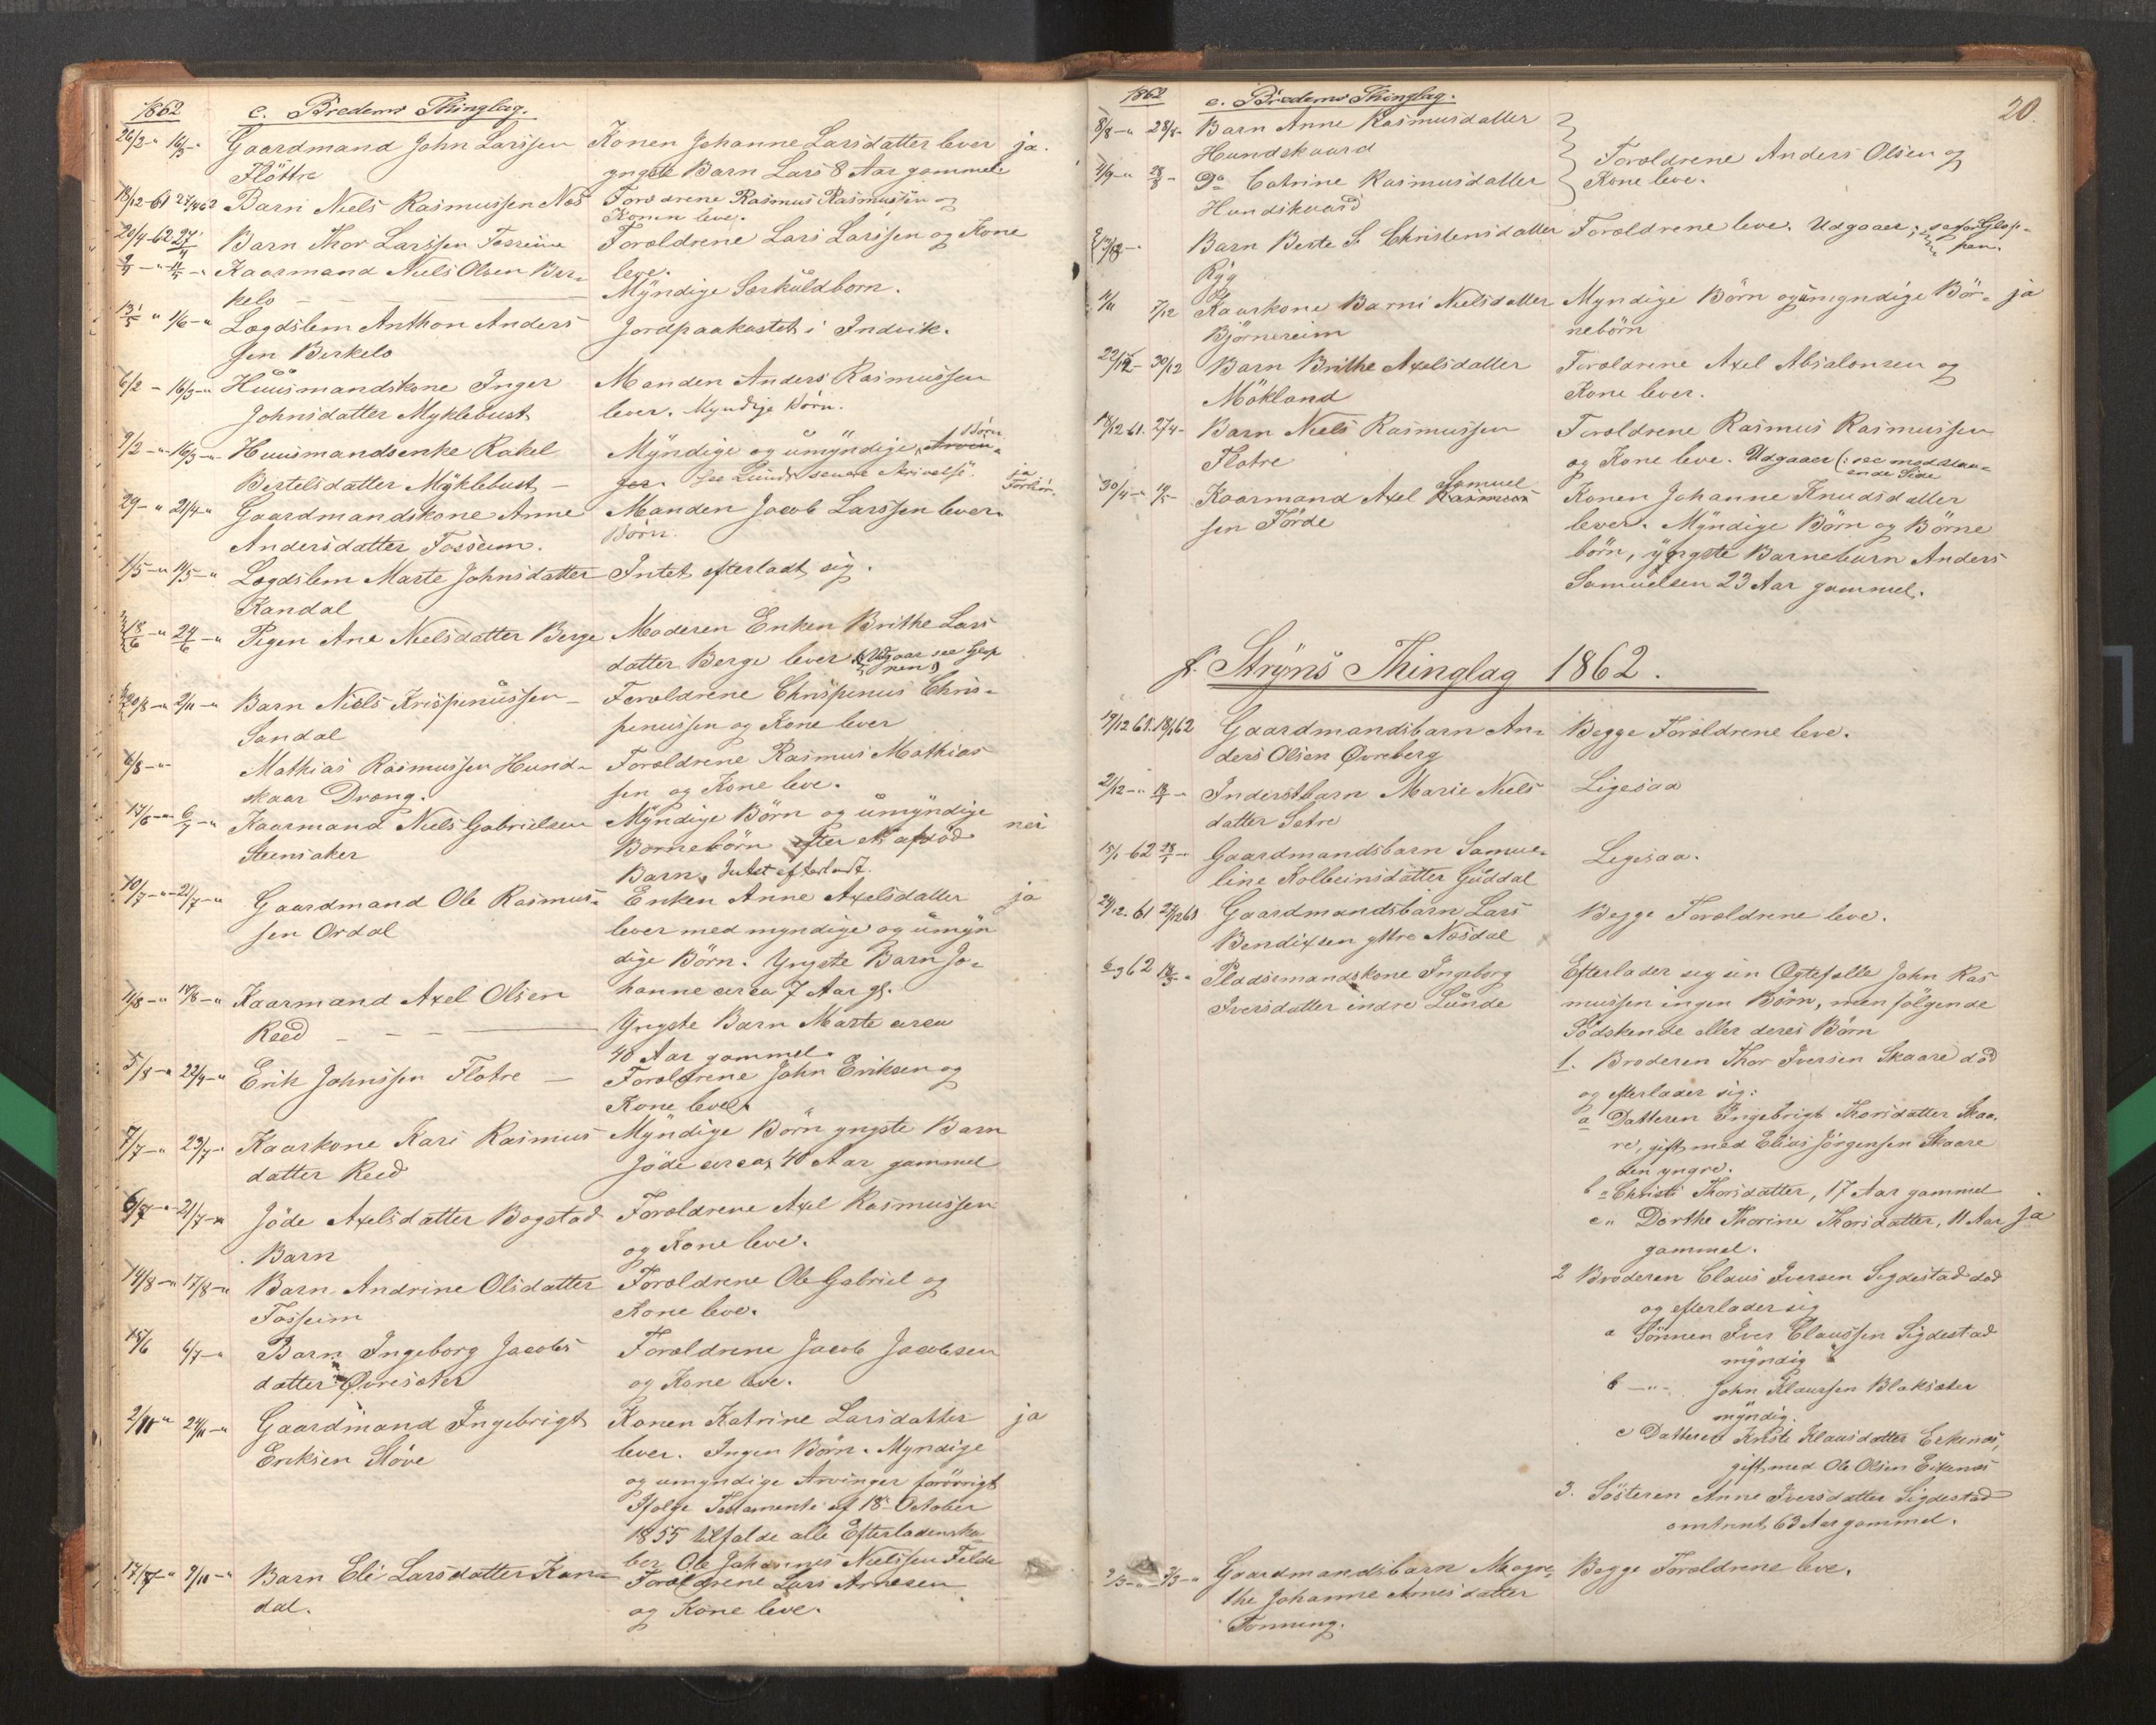 1862 c. Bredems Thinglag.
26/2 -" 16/3 -" Gaardmand John Larssen Konen Johanne Larsdatter lever ja.
Flöttre yngste Barn Lars 8 Aar gammel
18/12-61 27/4 62 Barn Niels Rasmussen Nös Forældrene Rasmus Rasmussen og
Konen leve.
20/4-62 27/4 Barn Thor Larssen Fosseim Forældrene Lars Larssen og Kone
leve.
Kaarmand Niels Olsen Bir-
kelo Myndige Særkuldborn.
13/5 " 1/6 -" Lægdslem Anthon Anders Jordpaakastet i Indvik.
sen Birkelo
6/2 - 16/3 -" Huusmandskone Inger Manden Anders Rasmussen
Johnsdatter Myklebust lever. Myndige Börn.
9/2 -" 16/3 -" Huusmandsenke Rakel Myndige og umyndige Börn
Bertelsdatter Myklebust - See Lunds senere Skrivelse.
29 -" 21/4 " Gaardmandskone Anne Manden Jacob Larssen lever
Andersdatter Fosseim. Börn.
11/5 -" Lægdslem Marte Johnsdatter Intet efterladt sig.
Kandal
18/6 -" 24/6 -" Pigen Ane Nielsdatter Berge Moderen Enken Brithe Lars
datter Berge lever (Udgaar see Glop
pen)
20/8 -" 2/11 -" Barn Niels Krispinussen - Forældrene Chrispinus Chris-
Sandal pinussen og Kone lever
6/8 -" Mathias Rasmussen Hund- Forældrene Rasmus Mathias
skaar Dræng. sen og Kone leve.
17/6 -" 6/7 -" Kaarmand Niels Gabrielsen Myndige Börn og umyndige nei
Steensaker Börnebörn efter et afdöd
Barn. Intet efterladt.
10/7 -" 21/7 -" Gaardmand Ole Rasmus- Enken Anne Axelsdatter ja
sen Ordal lever med myndige og umyn
dige Börn. Yngste Barn Jo-
hanne circa 7 Aar gl.
11/8 -" 17/8 -" Kaarmand Axel Olsen
Reed Yngste Barn Marte circa
40 Aar gammel.
5/8 -" 22/9 -" Erik Johnssen Flotre - Forældrene John Eriksen og
Kone lever.
7/7 -" 23/7 -" Kaarkone Kari Rasmus Myndige Börn yngste Barn
datter Reed Jöde circa 40 Aar gammel
6/7 -" 21/7 -" Jöde Axelsdatter Bogstad Forældrene Axel Rasmussen
Barn og Kone leve.
14/8 -" 17/8 -" Barn Andrine Olsdatter Forældrene Ole Gabriel og
Fosseim Kone leve.
15/6 6/7 -" Barn Ingeborg Jacobs Forældrene Jacob Jacobsen
datter Øvresæter og Kone leve.
2/11 " 24/11 -" Gaardmand Ingebrigt Konen Katrine Larsdatter ja
Eriksen Stöve lever. Ingen Börn. Myndige
og umyndige Arvinger forövrigt
Ifölge Testamente af 18 October
1855 tilfalde alle Efterladenska
ber Ole Johannes Nielssen Felde
17/7 -" 9/11 -" Barn Eli Larsdatter Kan- Forældrene Lars Arnesen
dal. og Kone leve.
1862 c. Bredems Thinglag. 20.
8/8 -" 28/8 - Barn Anne Rasmusdatter
Hundskaard Forældrene Anders Olsen og
4/9 -" 28/8 - Do Catrine Rasmusdatter Kone leve.
Hundskaard
Barn Berte S. Christensdatter Forældrene leve. Udgaaer, se for Glop-
Ryg pen.
4/11 7/12 Kaarkone Barni Nielsdatter Myndige Börn og umyndige Bör- ja
Björnereim nebörn
22/12 - 30/12 Barn Brithe Axelsdatter Forældrene Axel Absalonsen og
Mökland Kone lever.
18/12 61. 27/4 - Barn Niels Rasmussen Forældrene Rasmus Rasmussen
Flotre og Kone leve. Udgaaer (: see modstaa-
ende Side
30/4 -" Kaarmand Axel Samuel Konen Johanne Knudsdatter
sen Förde lever. Myndige Börn og Börne
börn, yngste Barnebarn Anders
Samuelsen 23 Aar gammel.
f. Stryns Thinglag 1862.
19/12 61. 18/1 62 Gaardmandsbarn An- Begge Forældrene leve.
ders Olsen Øvreberg
2/12 -" Inderstbarn Marie Niels Ligesaa
datter Sætre
15/1 -62 28/1 -" Gaardmandsbarn Samue- Ligesaa.
line Kolbeinsdatter Guddal
24/12. 61 Gaardmandsbarn Lars Begge Forældrene leve.
Bendixsen yttre Nesdal
6/3 62 18/3 " Pladsemandskone Ingeborg Efterlader sig sin Ægtefælle John Ras
Iversdatter indre Lunde mussen ingen Börn, men fölgende
Södskende eller deres Börn
1. Broderen Thor Iversen Skaare död
og efterlader sig:
a Datteren Ingebrigt Thorsdatter Skaa-
re, gift med Elias Jörgensen Skaare
den yngre.
b " Christi Thorsdatter, 17 Aar gammel
c " Dorthe Thorine Thorsdatter, 11 Aar ja
gammel.
2 Broderen Claus Iversen Sigdestad död
og efterlader sig
a Sönnen Iver Claussen Sigdestad
myndig
b -"- John Klaussen Blaksæter
myndig.
c Datteren Kriste Klausdatter Eikenæs,
gift med Ole Olsen Eikenæs
3. Sösteren Anne Iversdatter Sigdestad
omtrent 63 Aar gammel.
9/3 -" Gaardmandsbarn Magre- Begge Forældrene leve.
the Johanne Arnesdatter
Tonning.